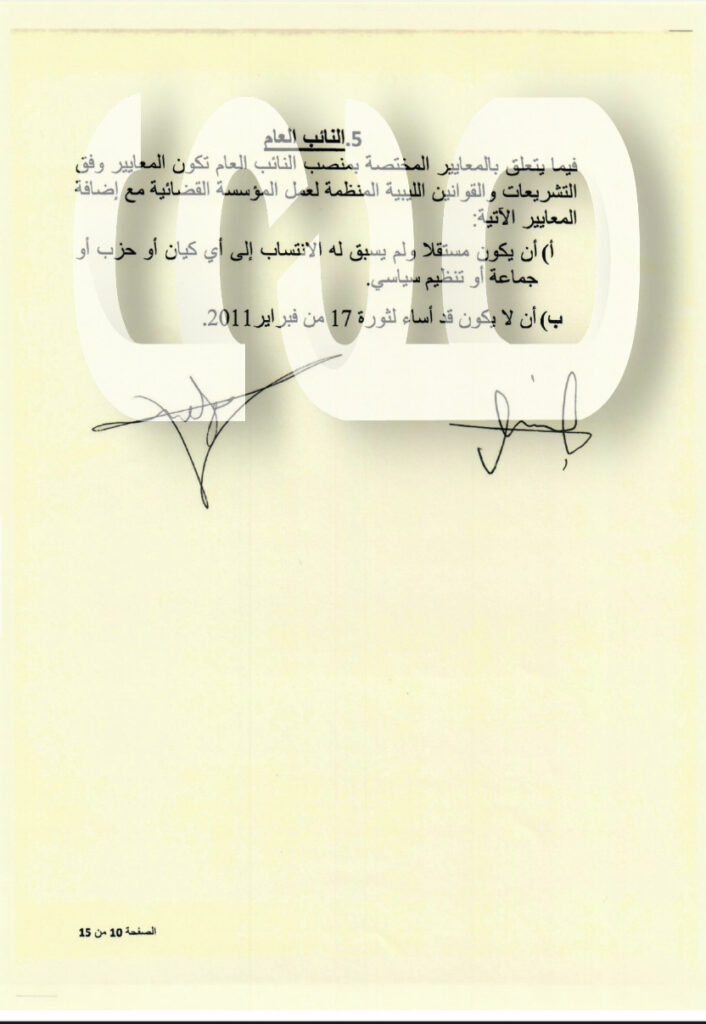 5.النائب العام
فيما يتعلق بالمعايير المختصة بمنصب النائب العام تكون المعايير وفق
التشريعات والقوانين الليبية المنظمة لعمل المؤسسة القضائية مع إضافة
المعايير الآتية:
أ) أن يكون مستقلا ولم يسبق له الانتساب إلى أي كيان أو حزب أو
جماعة أو تنظيم سياسي.
ب) أن لا يكون قد أساء لثورة 17 من فبراير2011.
الصفحة 10 من 15